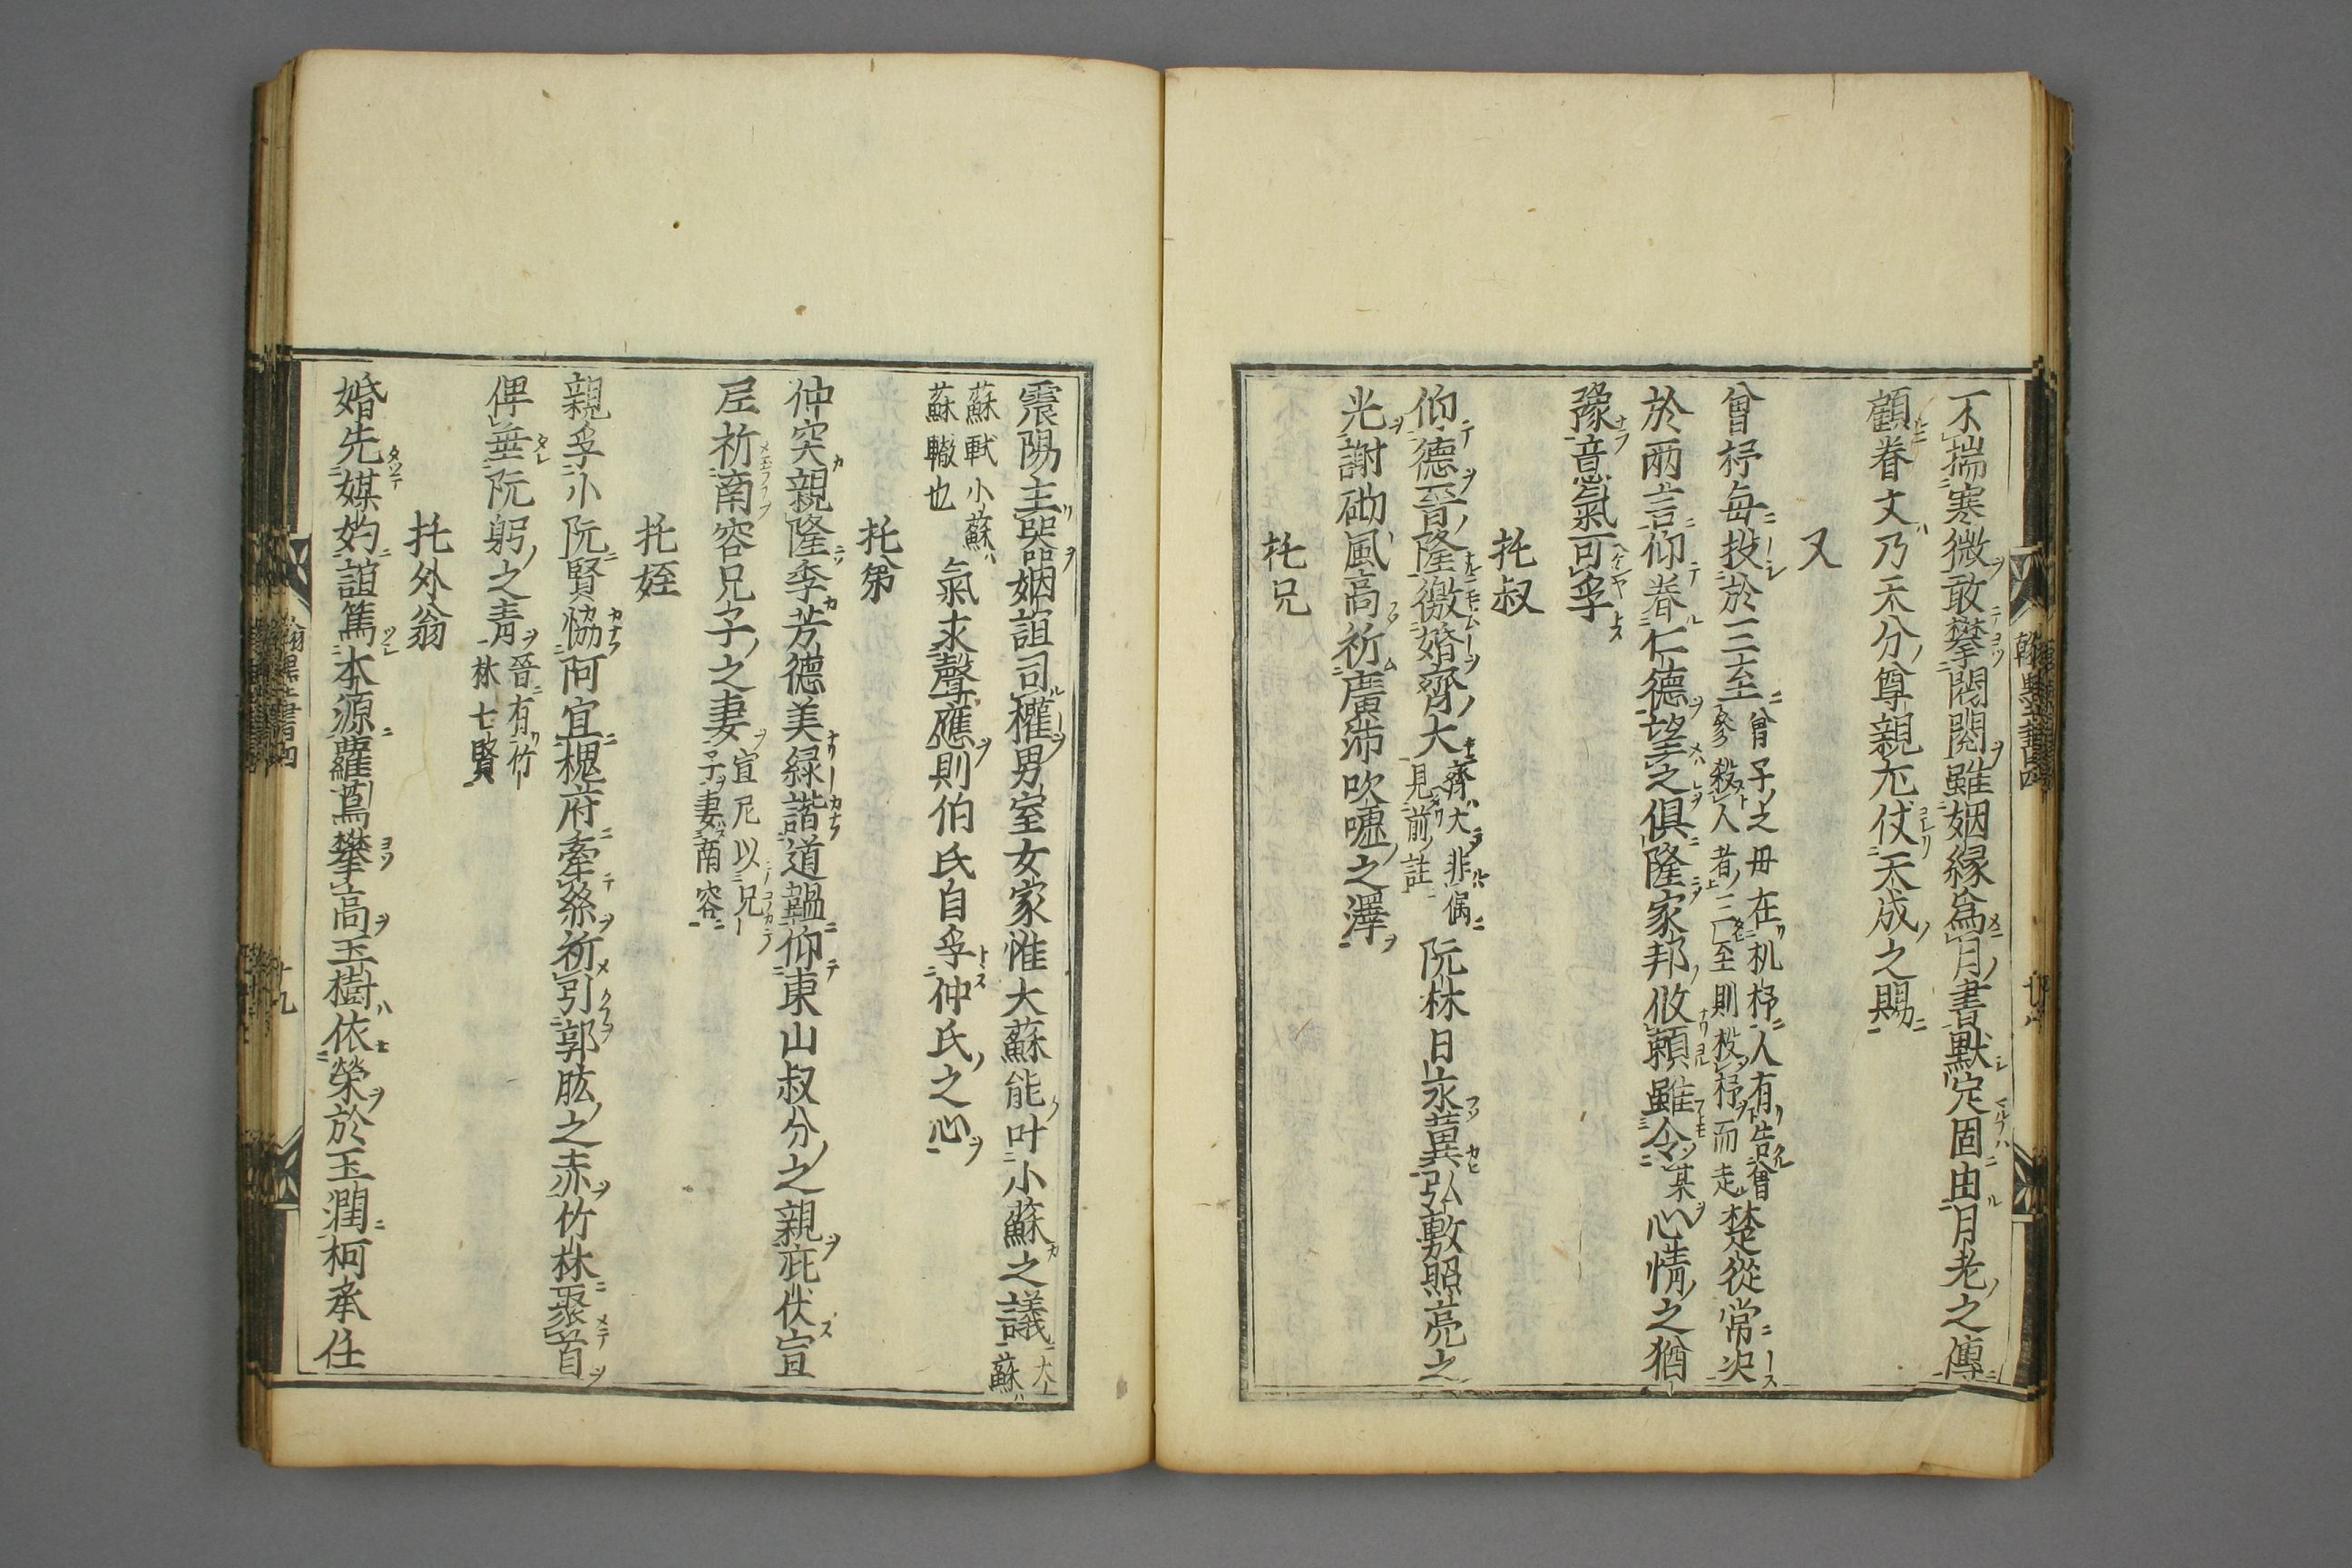 不揣寒微敢攀閥閱雖姻緣爲月書默定固由月老之傳
顧眷文乃天分尊親尤仗天成之賜
又
曾杼毎投於三至
曾子之母在机杼人有告曾
參殺人者三至則投杼而走
楚從常決
於兩言仰眷仁德望之俱隆家邦攸頼雖令某心情之猶
豫意氣可孚
托叔
仰德晉隆徼婚齊大
齊大非偶
見前註
阮林日永冀弘敷照亮之
光謝砌風高祈廣沛吹嘘之澤
托兄
震陽主器姻誼司權男室女家惟大蘇能叶小蘇之議
大
蘇
蘇軾小蘇
蘇轍也
氣求聲應則伯氏自孚仲氏之心
托弟
仲突親隆季芳德美緑諧道韞仰東山叔分之親庇伏宣
尼祈南容兄子之妻
宣尼以兄
子妻南容
托姪
親孚小阮賢恊阿宜槐府牽絲祈引郭肱之赤竹林聚首
俾垂阮躬之靑
晉有竹
林七賢
托外翁
婚先媒妁誼篤本源蘿蔦攀高玉樹依榮於玉潤柯承任
翰墨全書四
十九